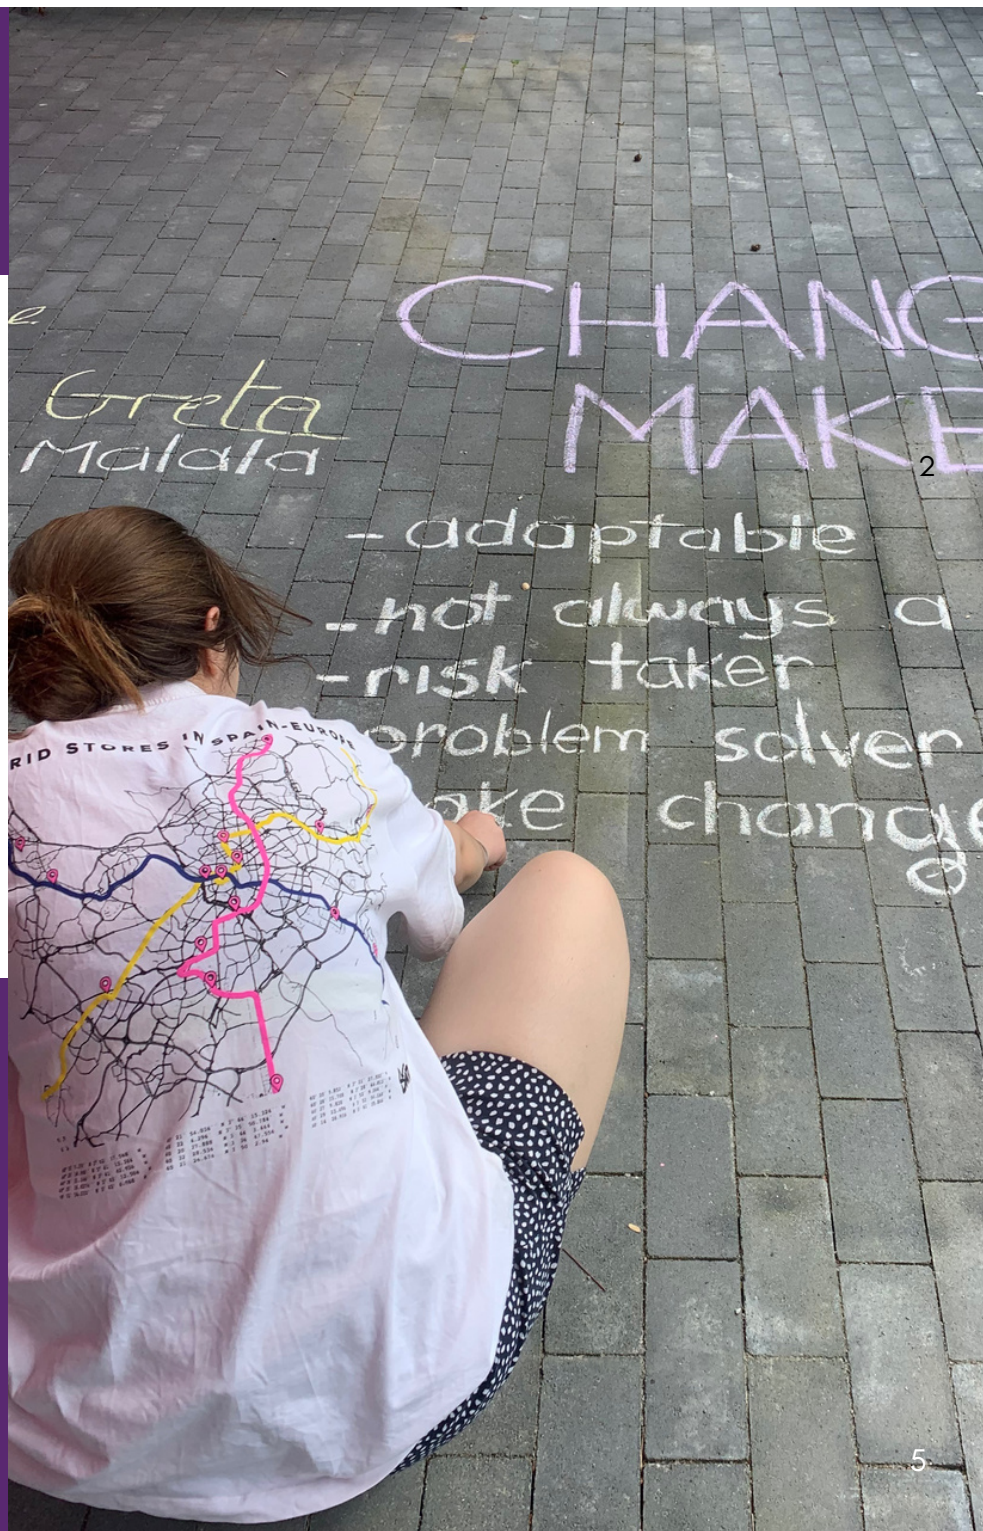 e.
Greta
Malala
CHANG
MAKE
2
- adaptable
- not always a
- risk taker
problem solver
ake change
RID STORES IN SPAIN-EUROPE
5